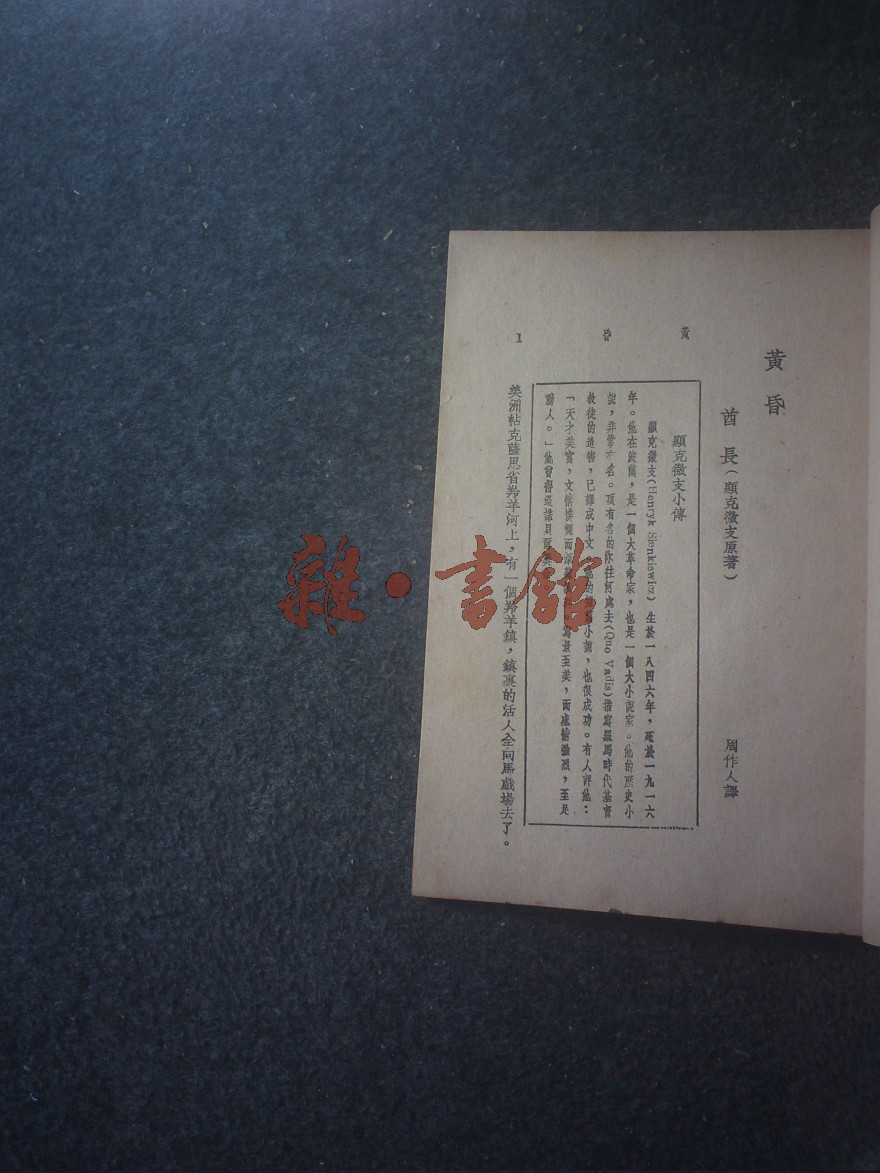 黃昏
黃昏
酋長（顯克微支原著）
周作人譯
顯克微支小傳
顯克微支(Henryk Sienkiewicz) 生於一八四六年，死於一九一六
年。他在波蘭，是一個大革命家，也是一個大小說家。他的歷史小
說，非常有名。頂有名的你往何處去(Quo Vadis)描寫羅馬時代基督
教徒的迫害，已譯成中文。他的小說，也很成功。有人評他：
「天才美富，文情悱惻而深，寫景至美，而感情強烈，至足
動人。」他曾魯迅諸具
美洲帖克薩思省羚羊河上，有一個羚羊鎮，鎮裏的活人全向馬戲場去了。
1
雜·書館